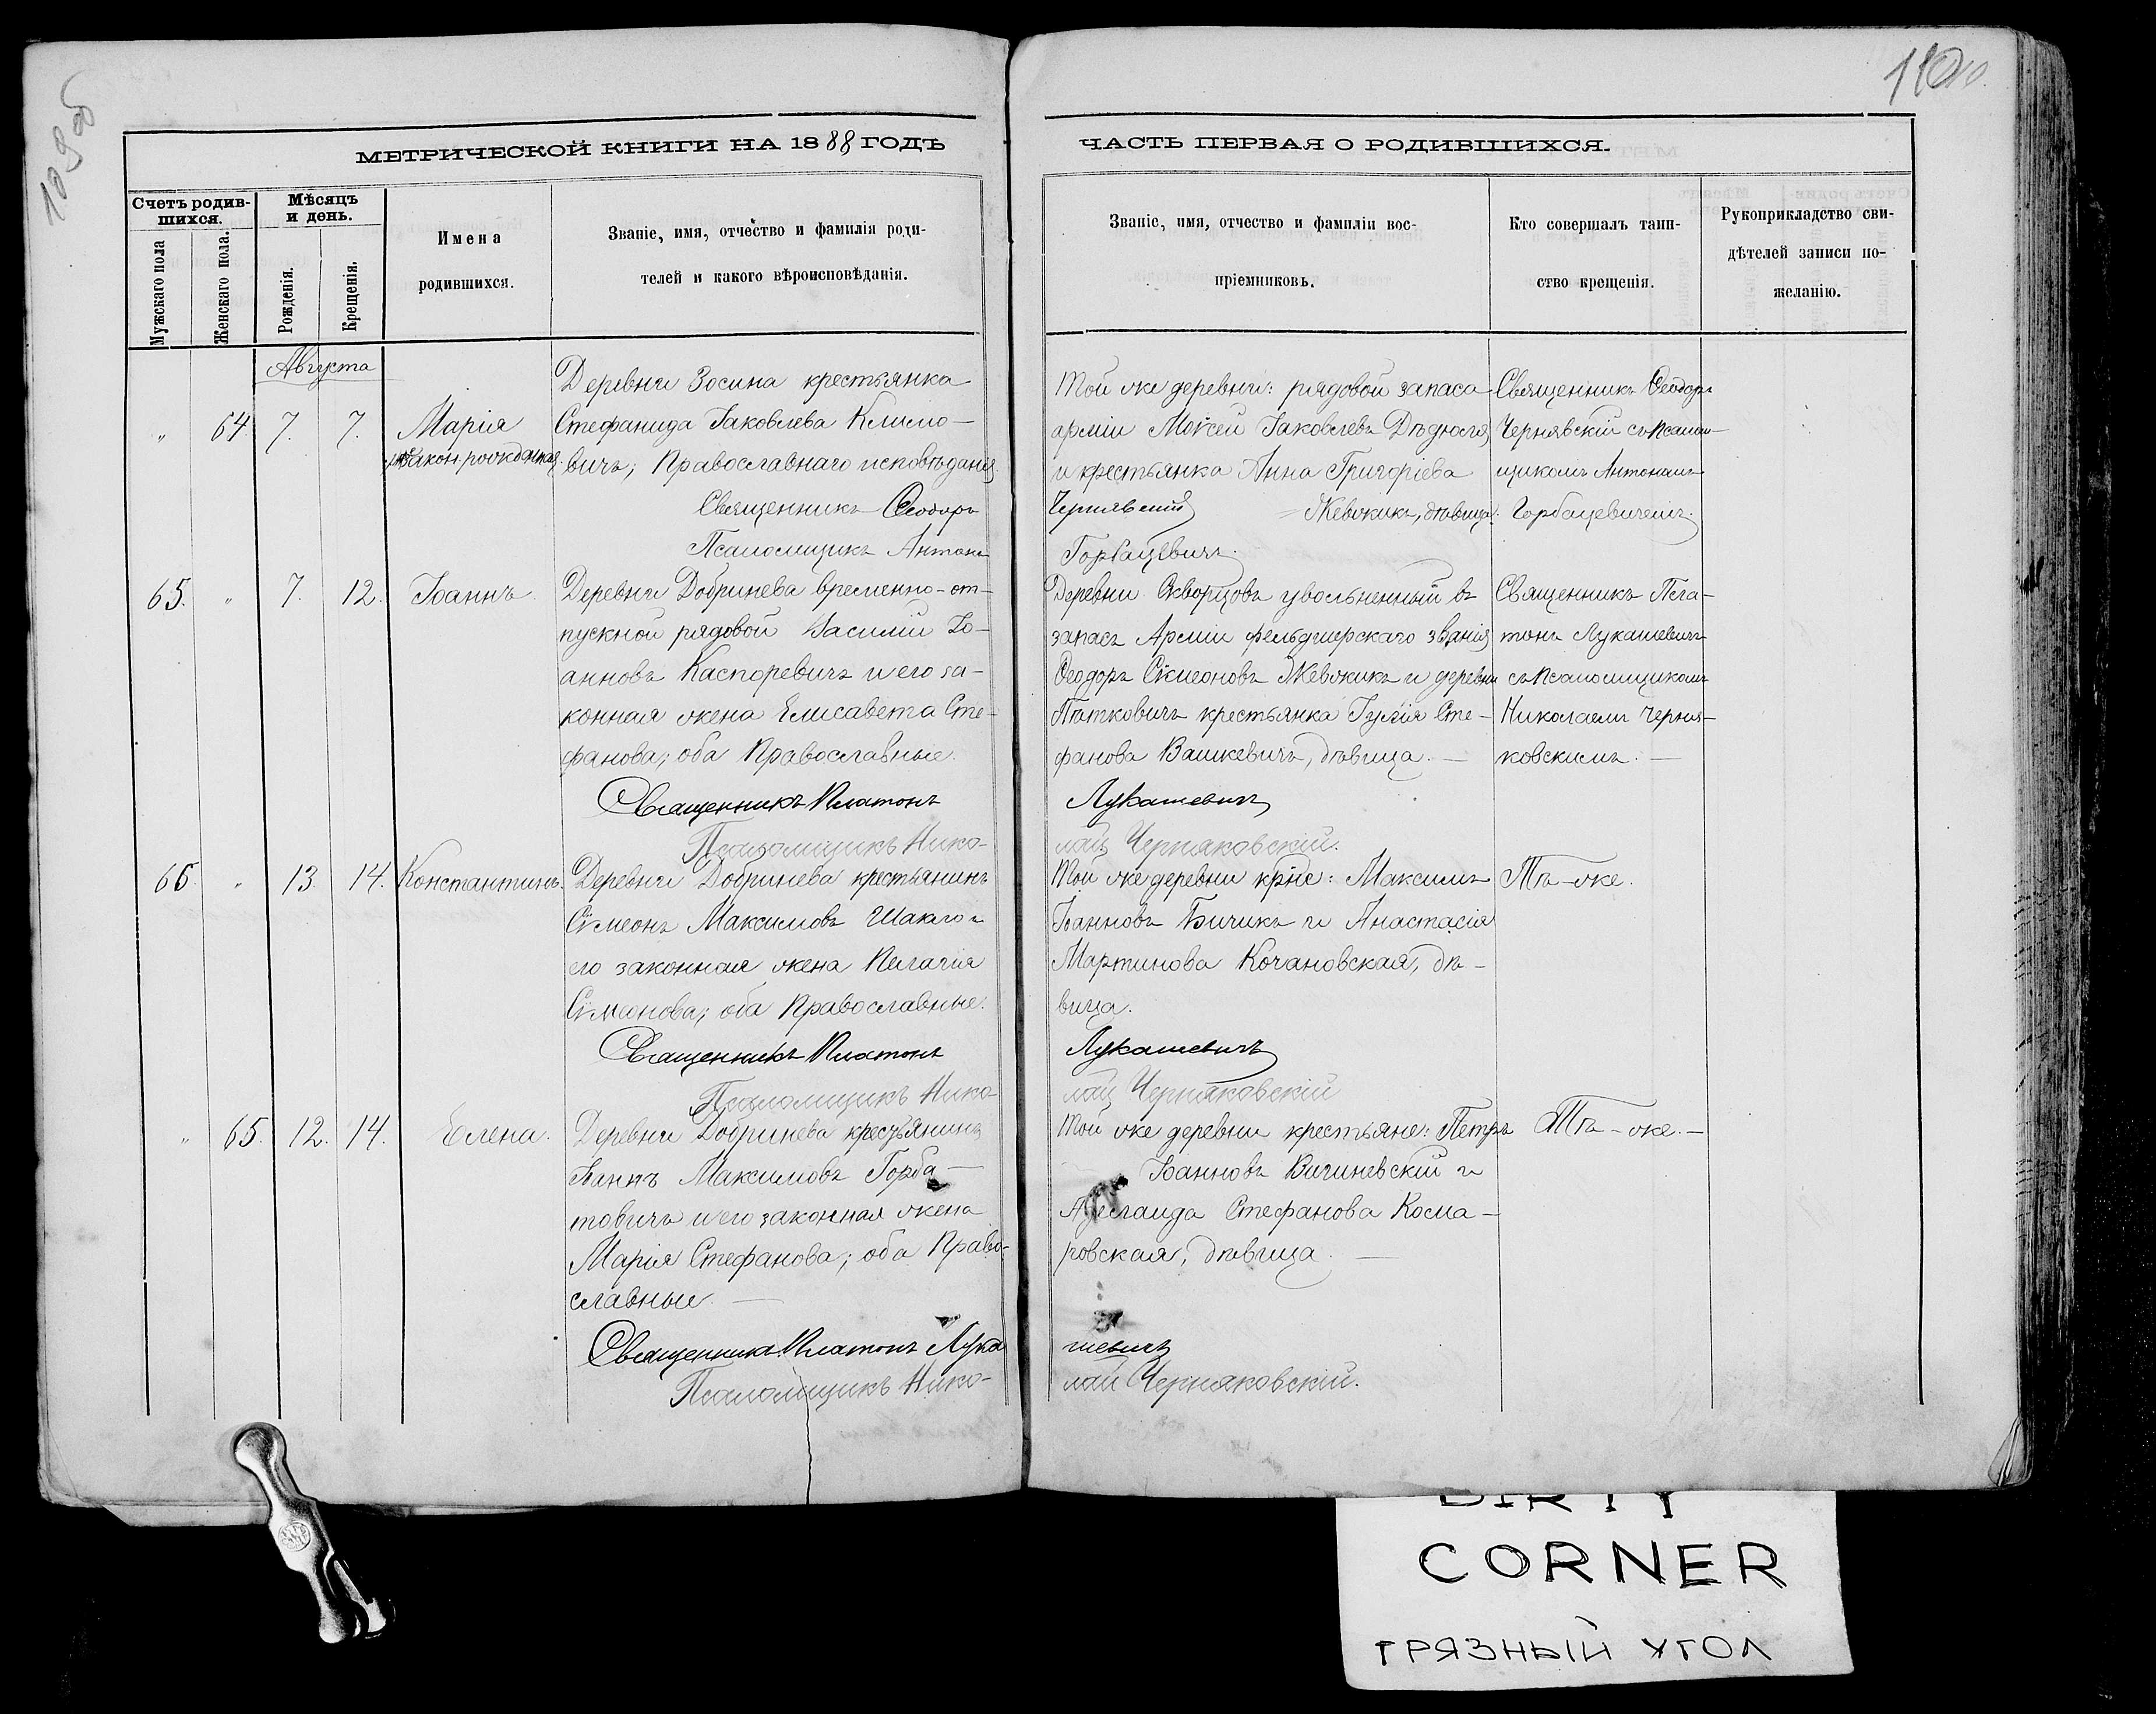 109 об
110
МЕТРИЧЕСКОЙ КНИГИ НА 1888 ГОДЪ
ЧАСТЬ ПЕРВАЯ О РОДИВШИХСЯ.
Счетъ родив-
шихся.
Мужскаго пола
Женскаго пола.
Мѣсяцъ
и день.
Рожденія.
Крещенія.
Имена
родившихся.
Званіе, имя, отчество и фамилія роди-
телей и какого вѣроисповѣданія.
Званіе, имя, отчество и фамиліи вос-
пріемниковъ.
Кто совершалъ таин-
ство крещенія.
Рукоприкладство сви-
дѣтелей записи по-
желанію.
Августа
„ 64. 7. 7. Марія
незакон. рожденная.
Деревни Зосина крестьянка
Стефанида Іаковлева Климо-
вичъ; Православнаго исповѣданія
Священникъ Ѳеодоръ
Псаломщикъ Антонъ
Той же деревни: рядовой запаса
арміи Моѵсей Іаковлевъ Дѣдюля
и крестьянка Анна Григоріева
Чернявскій Жевжикъ, дѣвица.
Горбацевичъ.
Священникъ Ѳеодоръ
Чернявскій съ Псалом-
щикомъ Антономъ
Горбацевичемъ.
65. „ 7. 12. Іоаннъ.
Деревни Добринева временно-от-
пускной рядовой Василій Іо-
анновъ Каспоревичъ и его за-
конная жена Елисавета Сте-
фанова; оба Православные.
Священникъ Платонъ
Псаломщикъ Нико-
Деревни Скворцовъ увольненный въ
запасъ Арміи фельдшерскаго званія
Ѳеодоръ Сѵмеоновъ Жевжикъ и деревни
Пяткович крестьянка Іулія Сте-
фанова Вашкевичъ, дѣвица. —
Лукашевичъ
лай Черняковскій.
Священникъ Пла-
тонъ Лукашевичъ
съ Псаломщикомъ
Николаемъ Черня-
ковскимъ. —
66. „ 13. 14. Константинъ.
Деревни Добринева крестьянинъ
Сѵмеонъ Максимовъ Шакло и
его законная жена Пелагія
Сѵмеонова; оба Православные.
Священникъ Платонъ
Псаломщикъ Нико-
Той же деревни крпе: Максимъ
Іоанновъ Бичикъ и Анастасія
Мартинова Кочановская, дѣ-
вица.
Лукашевичъ
лай Черняковскій
Тѣ-же.
„ 65. 12. 14. Елена.
Деревни Добринева крестьянинъ
Іоаннъ Максимовъ Горба-
товичъ и его законная жена
Марія Стефанова; оба Право-
славные. —
Священникъ Платонъ Лука
Псаломщикъ Нико-
Той же деревни крестьяне: Петръ
Іоанновъ Вигиневскій и
Аделаида Стефанова Кома-
ровская, дѣвица. —
шевичъ
лай Черняковскій.
Тѣ-же. —
DIRTY
CORNER
ГРЯЗНЫЙ УГОЛ